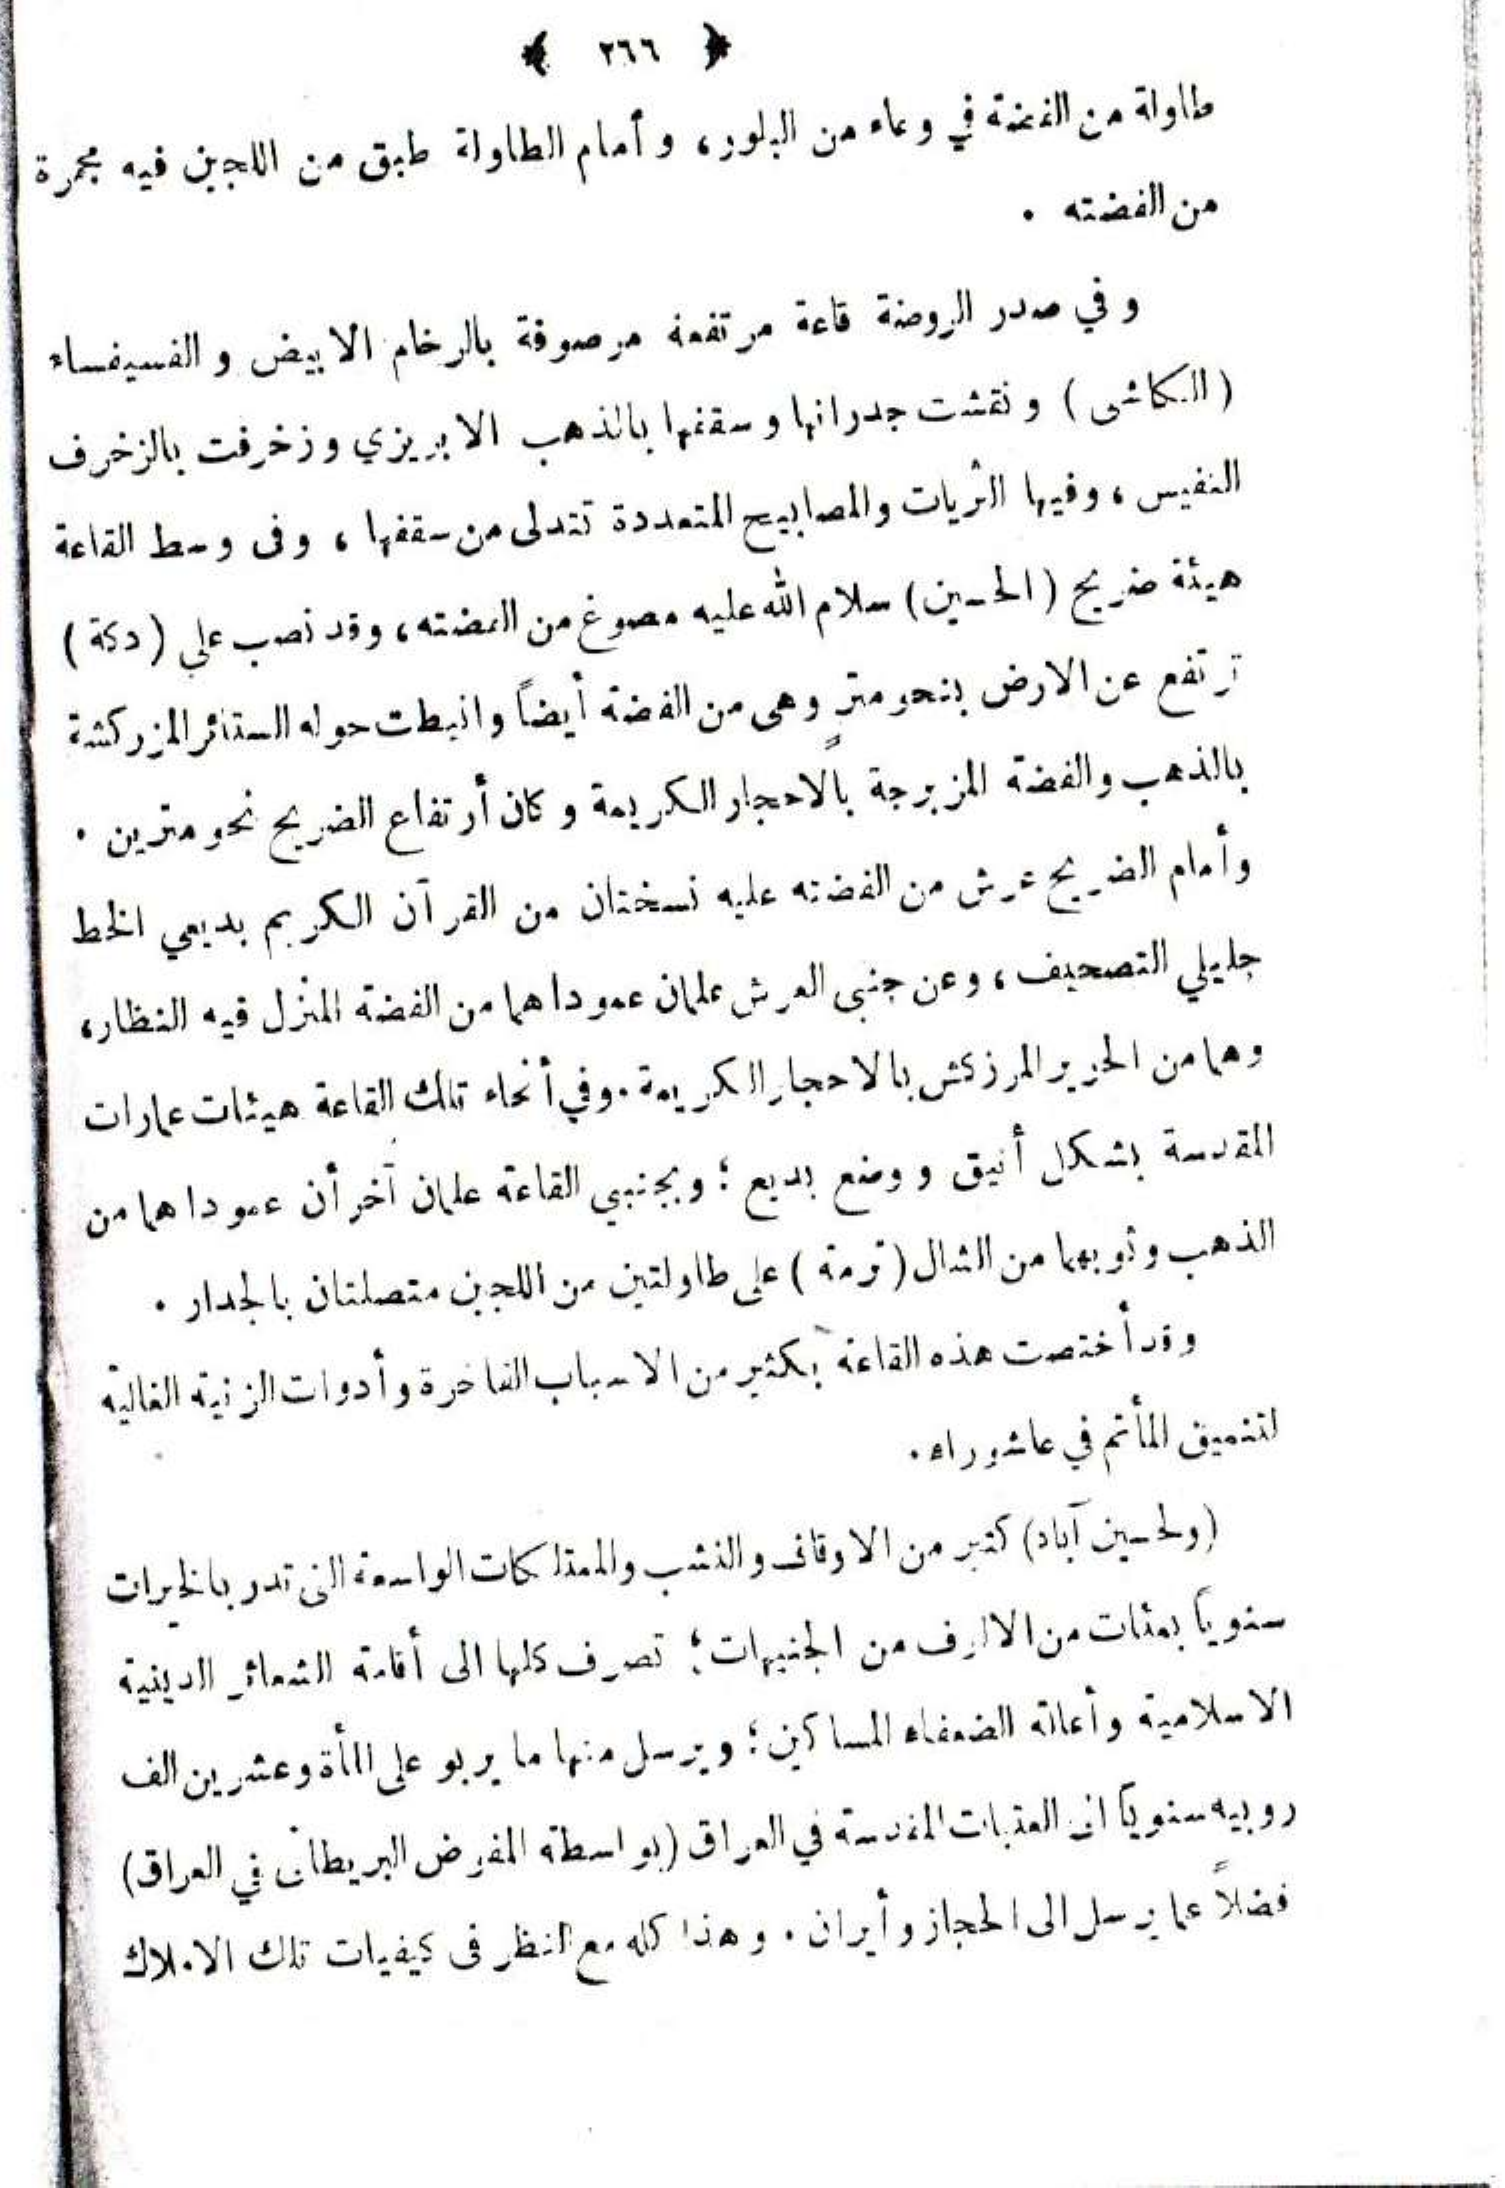 ﴿ ٢٦٦ ﴾
طاولة من الفضة في وعاء من البلور، وأمام الطاولة طبق من اللجين فيه مجمرة
من الفضته .
وفي صدر الروضة قاعة مرتفعة مرصوفة بالرخام الابيض والفسيفساء
(الكاشى) ونقشت جدرانها وسقفها بالذهب الابريزي وزخرفت بالزخرف
النفيس، وفيها الثريات والمصابيح المتعددة تتدلى من سقفها، وفى وسط القاعة
هيئة ضريح (الحسين) سلام الله عليه مصوغ من الفضته، وقد نصب على (دكة)
ترتفع عن الارض بنحو مترٍ وهى من الفضة أيضاً وانبطت حوله الستائر المزركشة
بالذهب والفضة المزبرجة بالاحجار الكريمة وكان أرتفاع الضريح نحو مترين .
وأمام الضريح عرش من الفضته عليه نسختان من القرآن الكريم بديعي الخط
جليلي التصحيف، وعن جنبى العرش علمان عموداهما من الفضة المنزل فيه النظار،
وهما من الحرير المرزكش بالاحجار الكريمة. وفي أنحاء تلك القاعة هيئات عمارات
المقدسة بشكل أنيق ووضع بديع؛ وبجنبي القاعة علمان آخرأن عموداهما من
الذهب وثوبهما من الشال (ترمة) على طاولتين من اللجين متصلتان بالجدار .
وقد أختصت هذه القاعة بكثير من الاسباب الفاخرة وأدوات الزنية الغالية
لتنميق المأتم في عاشوراء.
(ولحسين آباد) كثير من الاوقاف والنشب والممتلكات الواسعة التى تدر بالخيرات
سنوياً بمئات من الالوف من الجنيهات؛ تصرف كلها الى أقامة الشعائر الدينية
الاسلامية وأعانة الضعفاء المساكين؛ ويرسل منها ما يربو على المأة وعشرين الف
روبيه سنوياً الى العتبات المقدسة في العراق (بواسطة المفوض البريطانى في العراق)
فضلاً عما يرسل الى الحجاز وأيران. وهذا كله مع النظر فى كيفيات تلك الاملاك